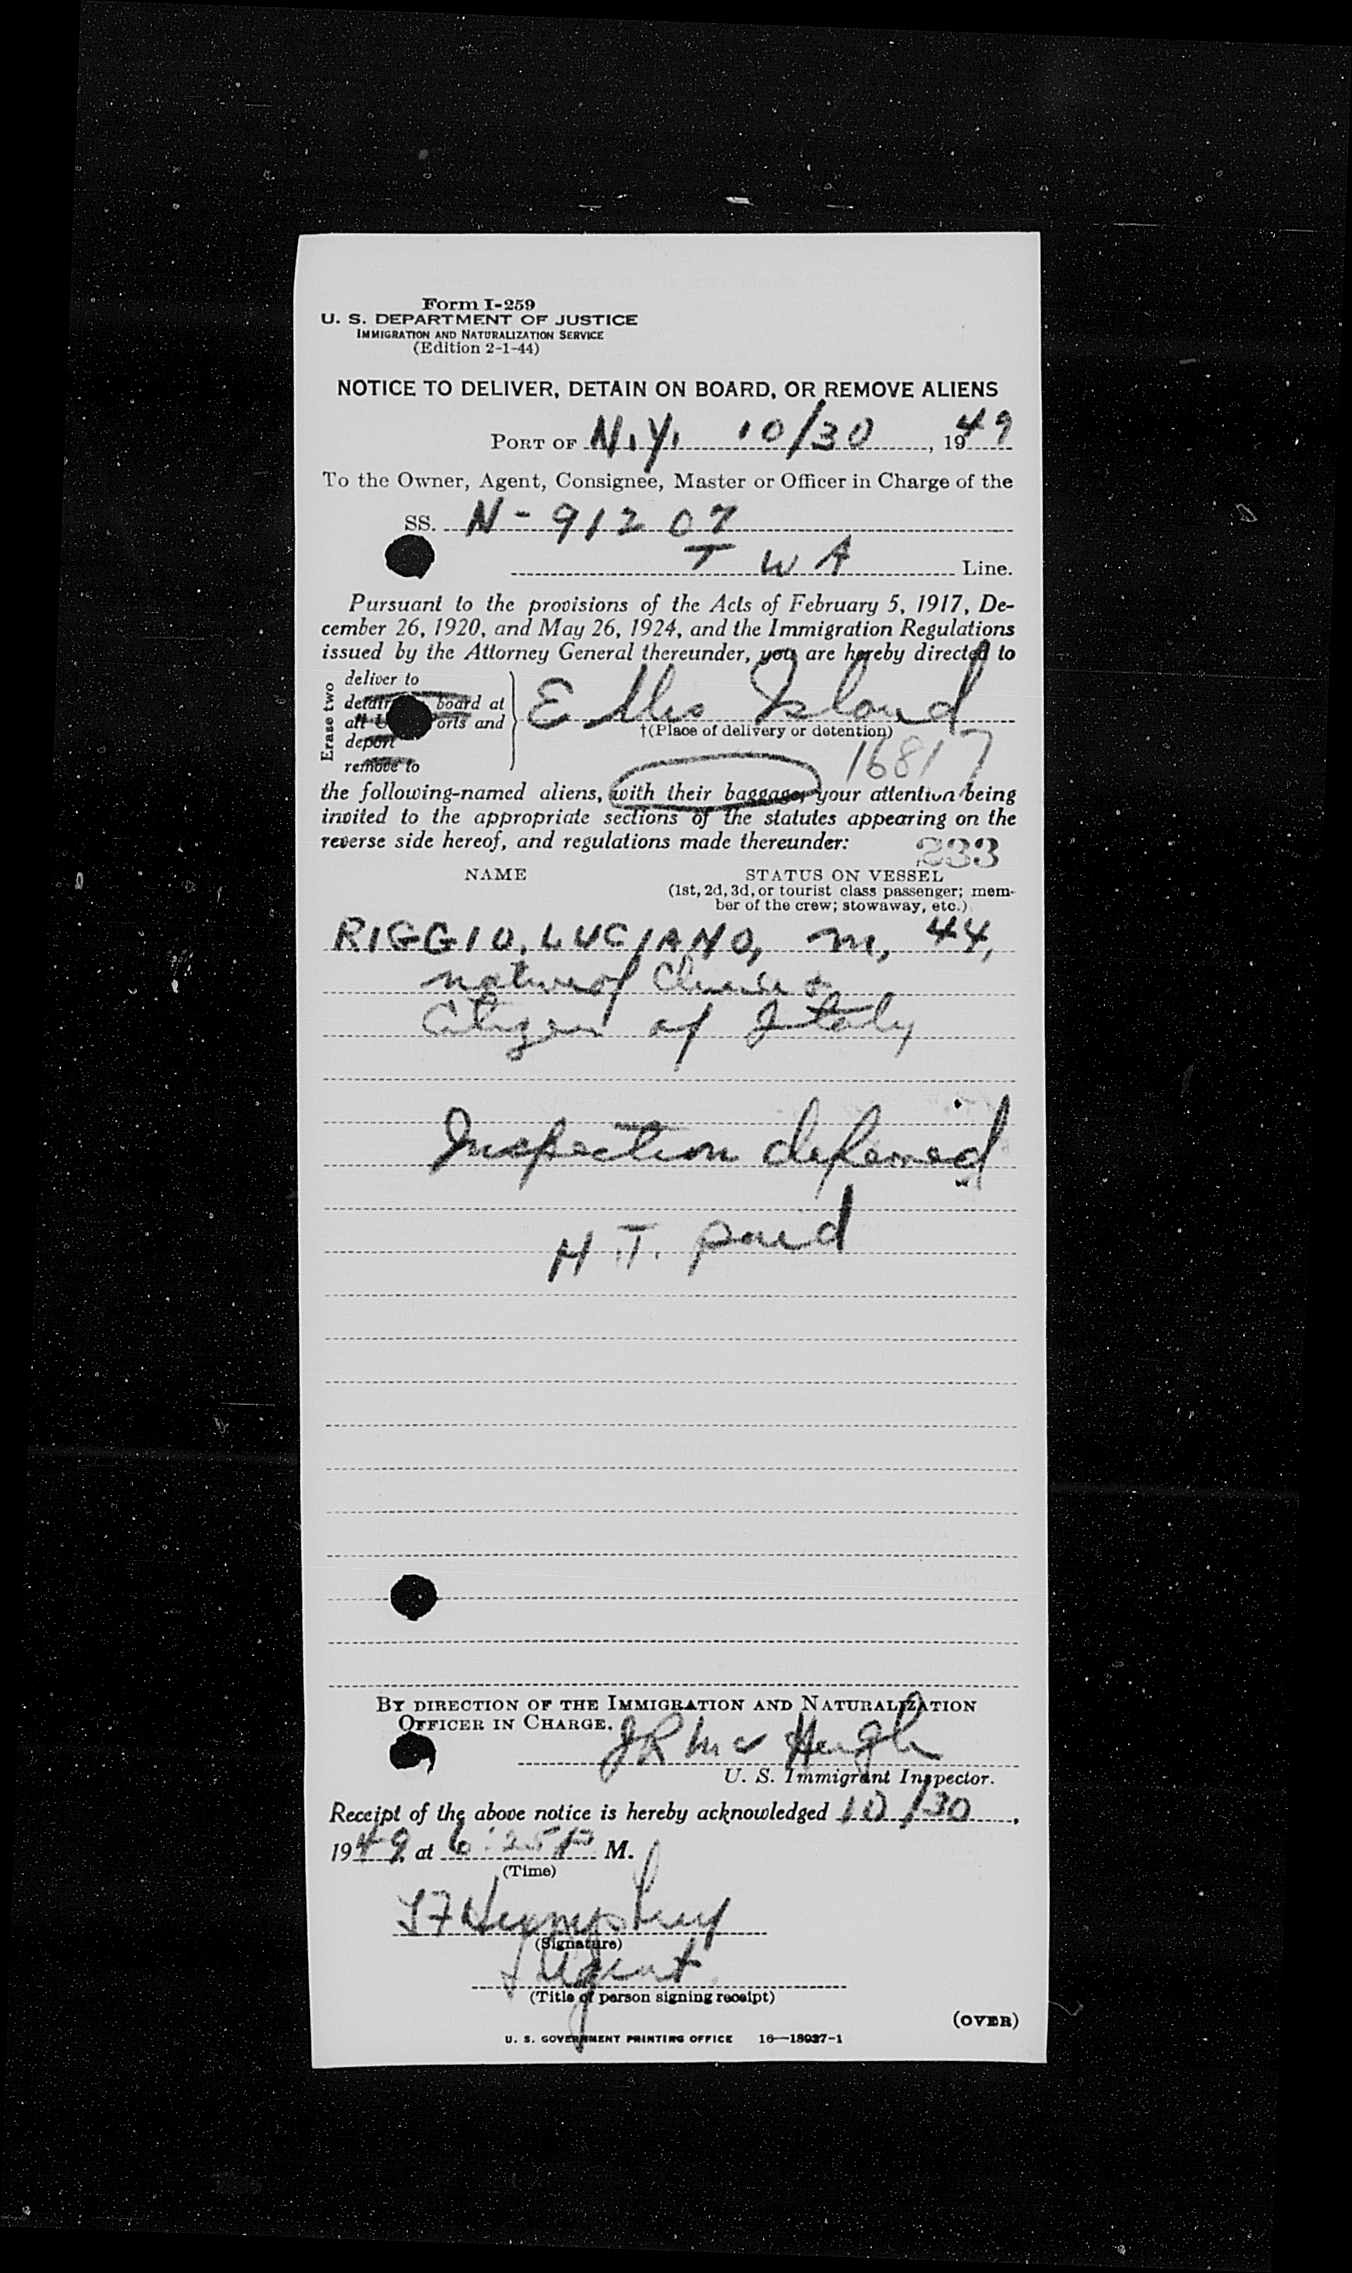 Form I-259
U. S. DEPARTMENT OF JUSTICE
IMMIGRATION AND NATURALIZATION SERVICE
(Edition 2-1-44)
NOTICE TO DELIVER, DETAIN ON BOARD, OR REMOVE ALIENS
PORT OF N.Y. 10/30, 1949
To the Owner, Agent, Consignee, Master or Officer in Charge of the
SS. N-91207
TWA Line.
Pursuant to the provisions of the Acts of February 5, 1917, De-
cember 26, 1920, and May 26, 1924, and the Immigration Regulations
issued by the Attorney General thereunder, you are hereby directed to
Erase two
deliver to
board at
orts and
deport
remove to
Ellis Island
†(Place of delivery or detention)
16817
the following-named aliens, with their baggage, your attention being
invited to the appropriate sections of the statutes appearing on the
reverse side hereof, and regulations made thereunder:
233
NAME STATUS ON VESSEL
(1st, 2d, 3d, or tourist class passenger; mem-
ber of the crew; stowaway, etc.)
RIGGIO, LUCIANO, m, 44,
native of
Citizen of Italy
Inspection deferred
H.T. paid
BY DIRECTION OF THE IMMIGRATION AND NATURALIZATION
OFFICER IN CHARGE.
JR McHugh
U. S. Immigrant Inspector.
Receipt of the above notice is hereby acknowledged 10/30,
1949 at 6:25 P M.
(Time)
Humphrey
(Signature)
Agent
(Title of person signing receipt)
(OVER)
U. S. GOVERNMENT PRINTING OFFICE 16—18937-1